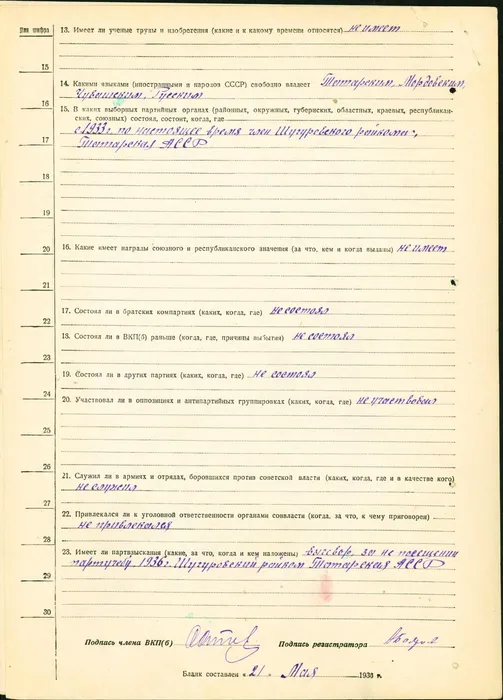 Для шифра
13. Имеет ли ученые труды и изобретения (какие и к какому времени относятся) не имеет
15
14. Какими языками (иностранными и народов СССР) свободно владеет Тотарским, Мордовским,
16
Чувашским, Русским
15. В каких выборных партийных органах (районных, окружных, губернских, областных, краевых, республикан-
ских, союзных) состоял, состоит, когда, где
с 1933 г. по настоящее время член Шугуровского райкома,
17
Тотарская АССР
18
19
20
16. Какие имеет награды союзного и республиканского значения (за что, кем и когда выданы) не имеет
21
17. Состоял ли в братских компартиях (каких, когда, где) не состоял
22
18. Состоял ли в ВКП(б) раньше (когда, где, причины выбытия) не состоял
23
19. Состоял ли в других партиях (каких, когда, где) не состоял
24
20. Участвовал ли в оппозициях и антипартийных группировках (каких, когда, где) не участвовал
25
26
21. Служил ли в армиях и отрядах, боровшихся против советской власти (каких, когда, где и в качестве кого)
не служил
27
22. Привлекался ли к уголовной ответственности органами соввласти (когда, за что, к чему приговорен)
не привлекался
28
23. Имеет ли партвзыскания (какие, за что, когда и кем наложены) выговор, за не посещении
партучебы 1936 г. Шугуровский райком Тотарская АССР
29
30
Подпись члена ВКП(б) Подпись регистратора
Бланк составлен „21“ Мая 1936 г.